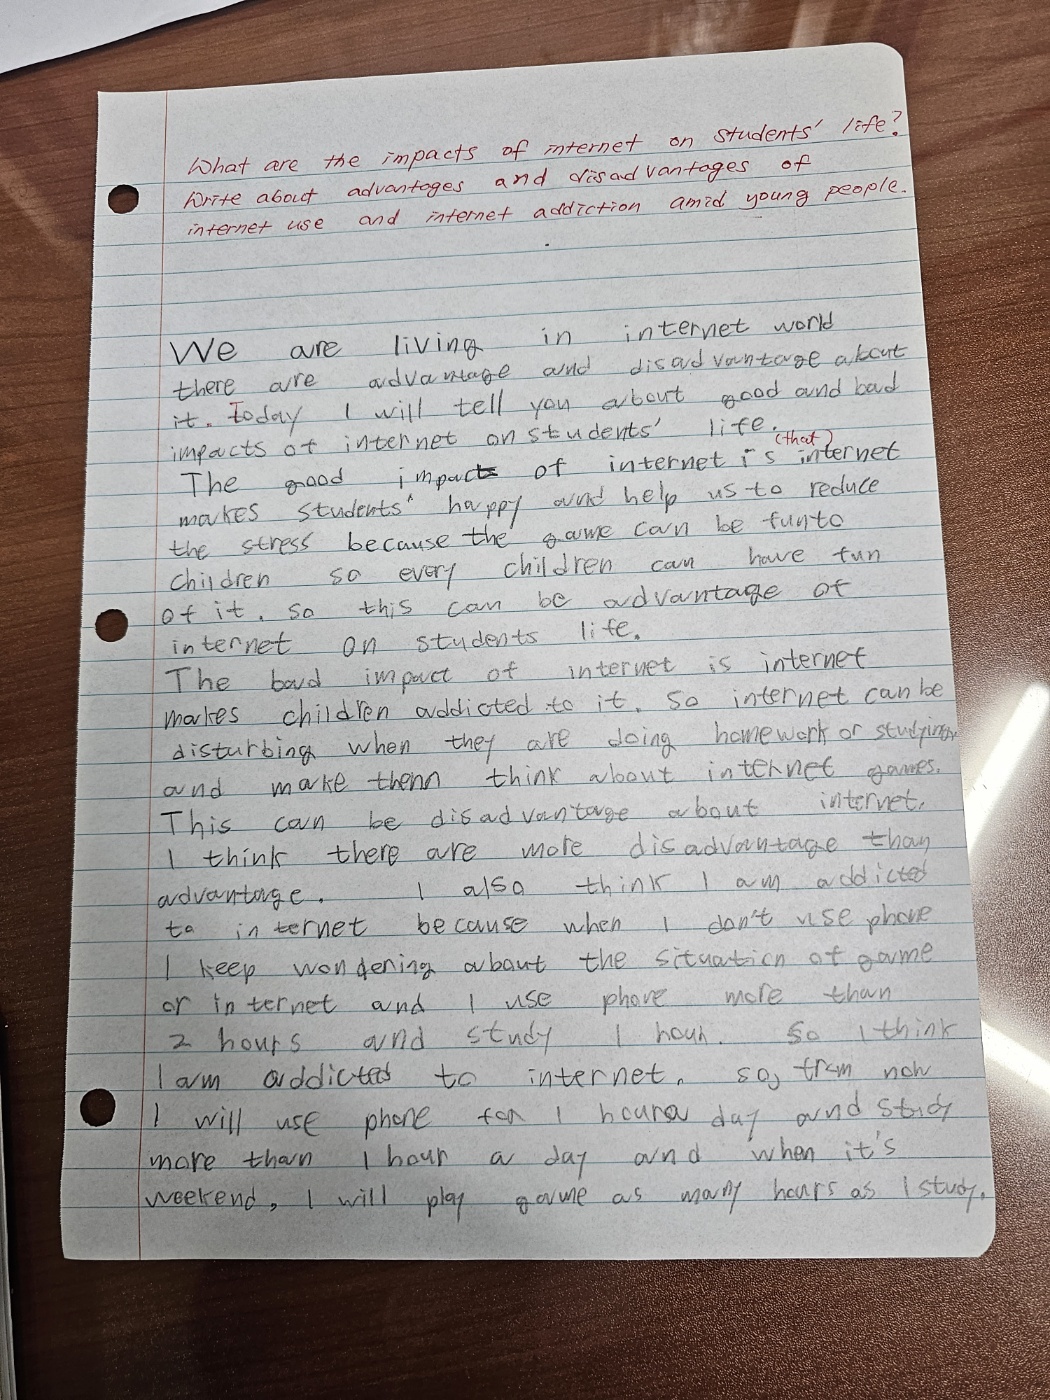 What are the impacts of internet on students' life?
Write about advantages and disadvantages of
internet use and internet addiction amid young people.
We are living in internet world
there are advantage and disadvantage about
it. Today I will tell you about good and bad
impacts of internet on students' life.
(that)
The good impact of internet is internet
makes students' happy and help us to reduce
the stress because the game can be fun to
children so every children can have fun
of it. so this can be advantage of
internet on students life.
The bad impact of internet is internet
makes children addicted to it. so internet can be
disturbing when they are doing homework or studying
and make them think about internet games.
This can be disadvantage about internet.
I think there are more disadvantage than
advantage. I also think I am addicted
to internet because when I don't use phone
I keep wondering about the situation of game
or internet and I use phone more than
2 hours and study 1 hour. so I think
I am addicted to internet. so, from now
I will use phone for 1 hour a day and study
more than 1 hour a day and when it's
weekend, I will play game as many hours as I study.